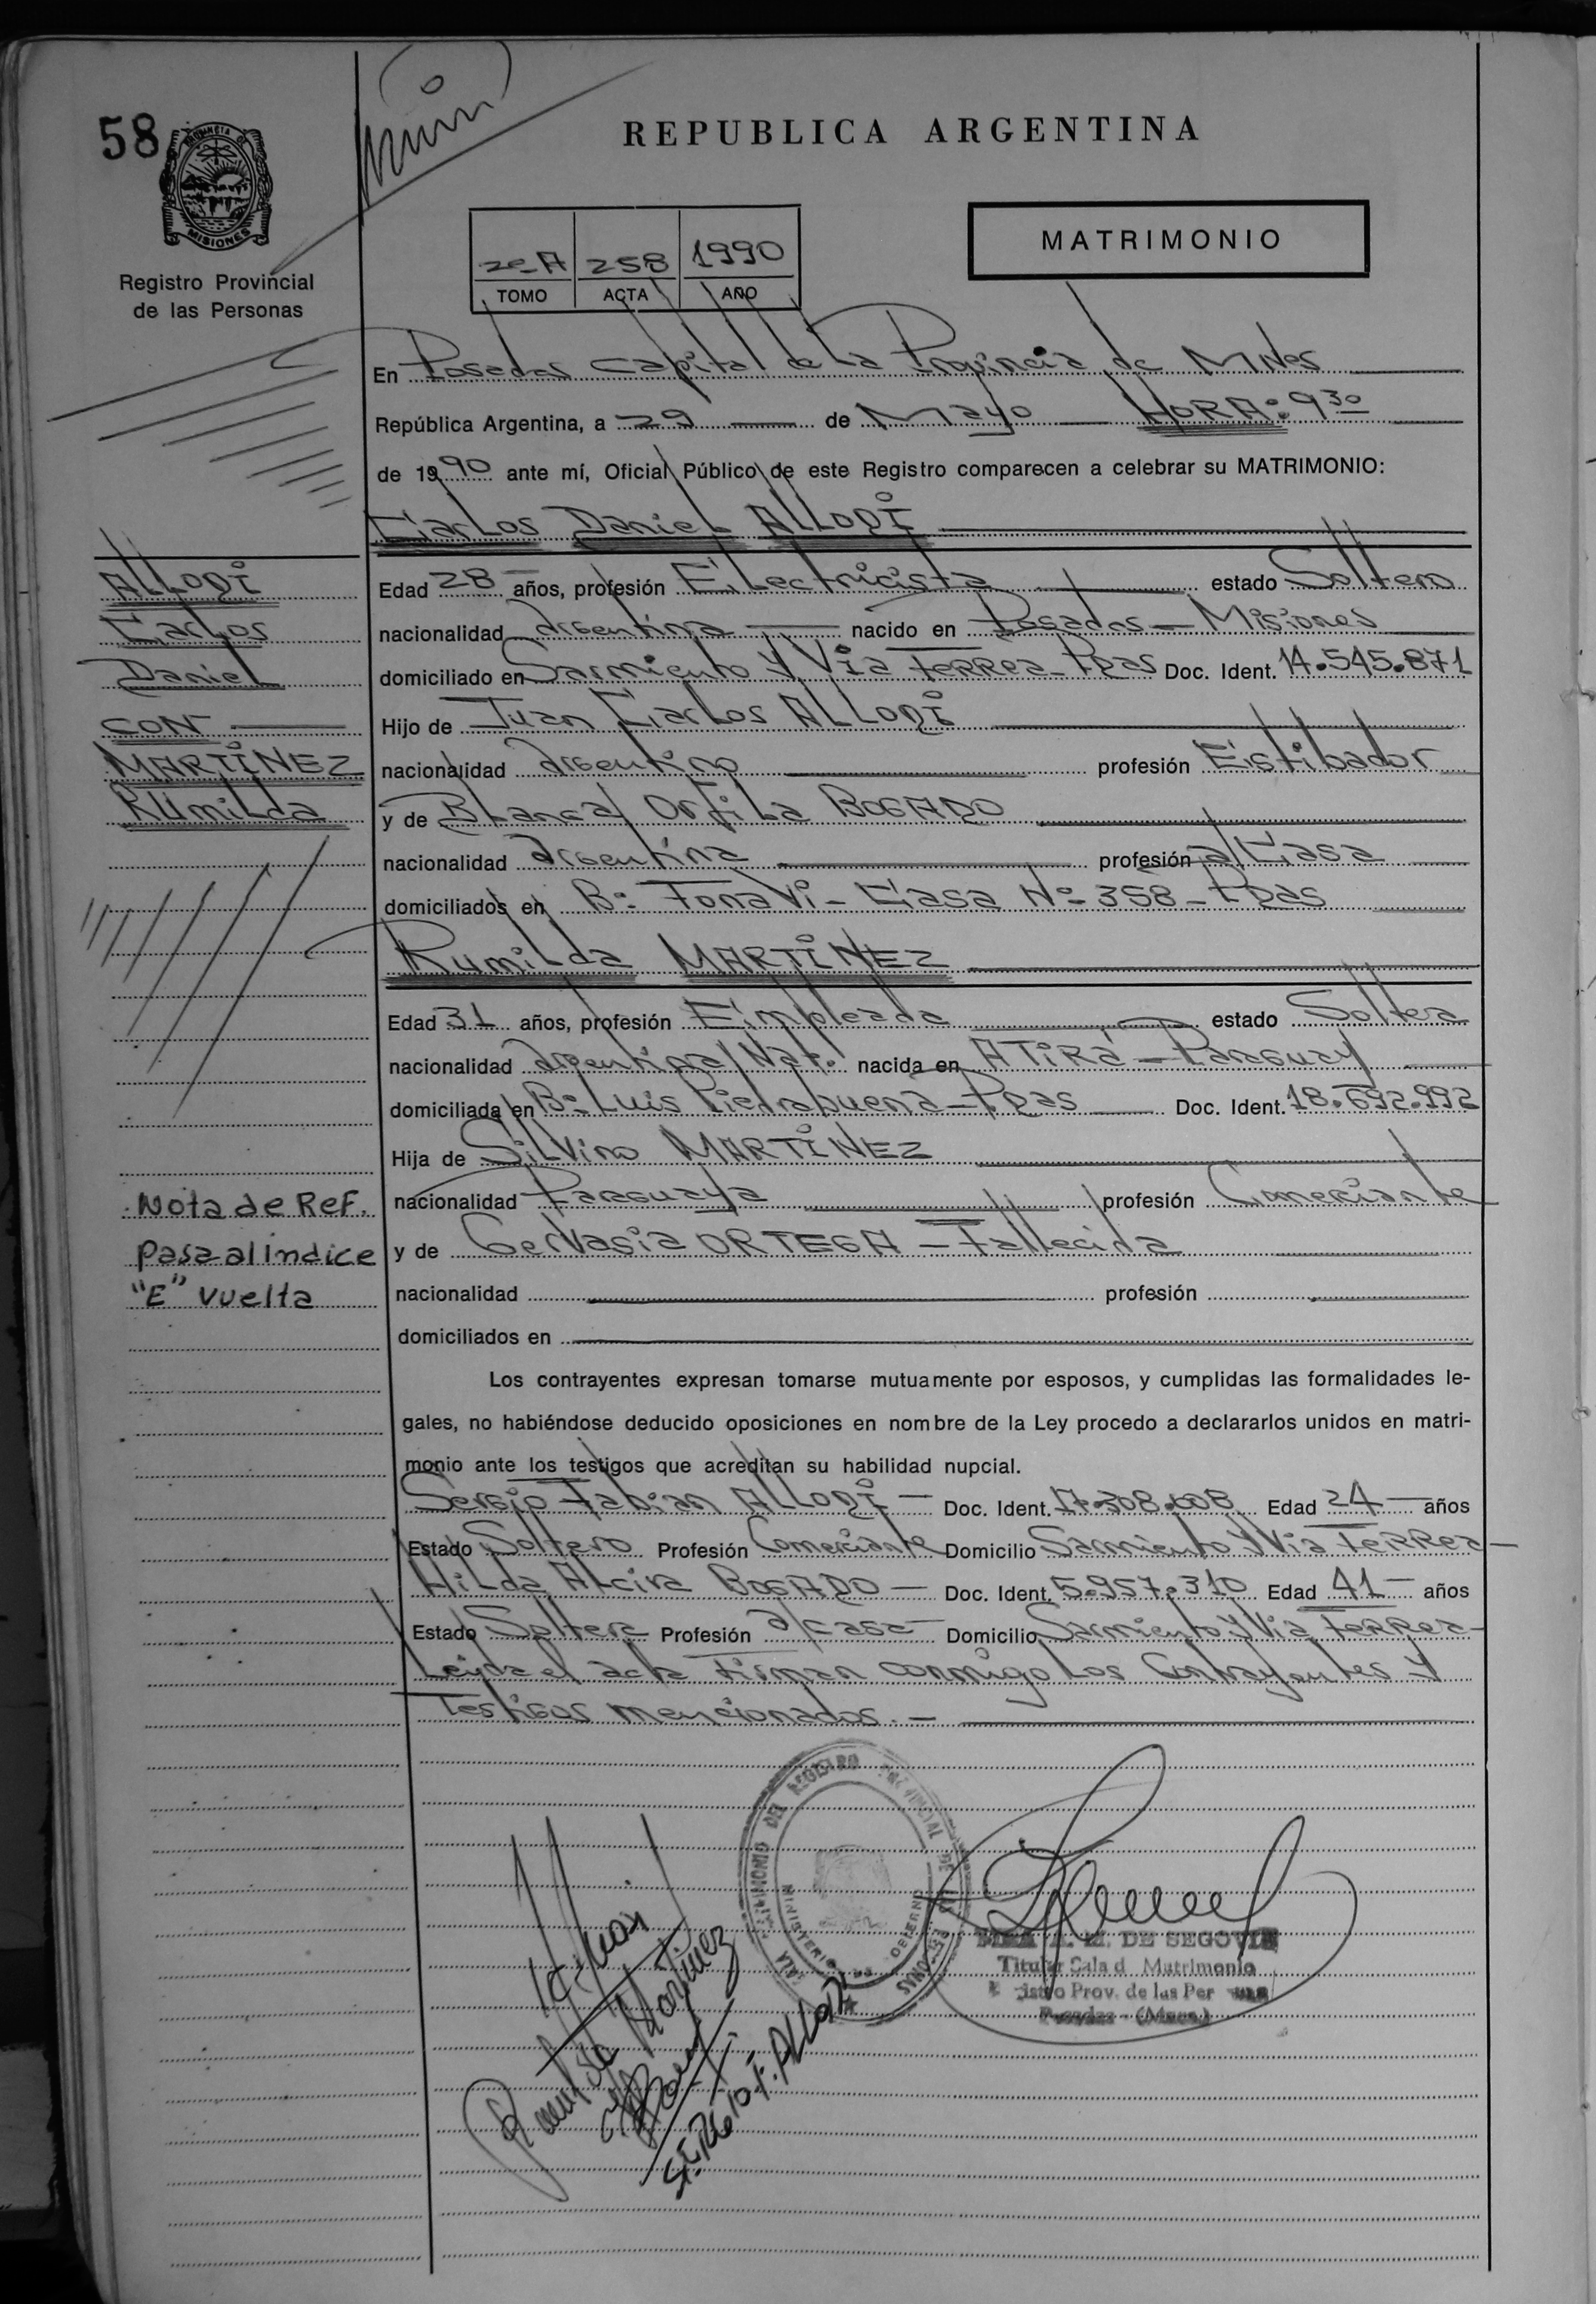 58
REPUBLICA ARGENTINA
MISIONES
Registro Provincial
de las Personas
2o A 258 1990
TOMO ACTA AÑO
MATRIMONIO
En Posadas Capital de la Provincia de Mnes
República Argentina, a 29 de Mayo HORA: 9 30
de 1990 ante mí, Oficial Público de este Registro comparecen a celebrar su MATRIMONIO:
Carlos Daniel ALLODI
ALLODI
Carlos
Daniel
CON
MARTINEZ
Rumilda
Edad 28 años, profesión Electricista estado Soltero
nacionalidad argentina nacido en Posadas - Misiones
domiciliado en Sarmiento y Via Ferrea - Pdas Doc. Ident. 14.545.871
Hijo de Juan Carlos ALLODI
nacionalidad argentino profesión Estibador
y de Blanca Orfila BOGADO
nacionalidad argentina profesión a/ Casa
domiciliados en B: Fonavi - Casa Nº 358 - Pdas
Rumilda MARTINEZ
Edad 31 años, profesión Empleada estado Soltera
nacionalidad argentina/Nat. nacida en ATIRA - Paraguay
domiciliada en B: Luis Piedrabuena - Pdas Doc. Ident. 18.692.992
Hija de Silvino MARTINEZ
nacionalidad Paraguaya profesión Comerciante
y de Gervasia ORTEGA - Fallecida
nacionalidad profesión
domiciliados en
Nota de Ref.
Pasa al indice
"E" vuelta
Los contrayentes expresan tomarse mutuamente por esposos, y cumplidas las formalidades le-
gales, no habiéndose deducido oposiciones en nombre de la Ley procedo a declararlos unidos en matri-
monio ante los testigos que acreditan su habilidad nupcial.
Sergio Fabian ALLODI - Doc. Ident. 17.308.608 Edad 24 años
Estado Soltero Profesión Comerciante Domicilio Sarmiento y Via Ferrea -
Hilda Alcira BOGADO - Doc. Ident. 5.957.310 Edad 41 años
Estado Soltera Profesión a/ casa Domicilio Sarmiento y Via Ferrea -
Leida el acta Firman conmigo los Contrayentes y
Testigos mencionados. -
Rumilda Martinez
SERGIO F. ALLODI
MATRIMONIO DEL REGISTRO PROVINCIAL DE LAS PERSONAS
MINISTERIO DE GOBIERNO
A. M. DE SEGOVIA
Titular Sala d Matrimonio
istro Prov. de las Per
Posadas - (Mnes.)